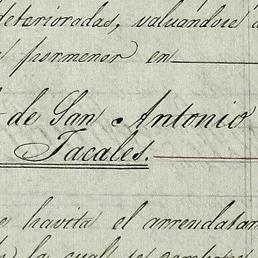 deterioradas, valuandose
pormenor en
de San Antonio
Jacales.
havita el arrendatar
la cual se